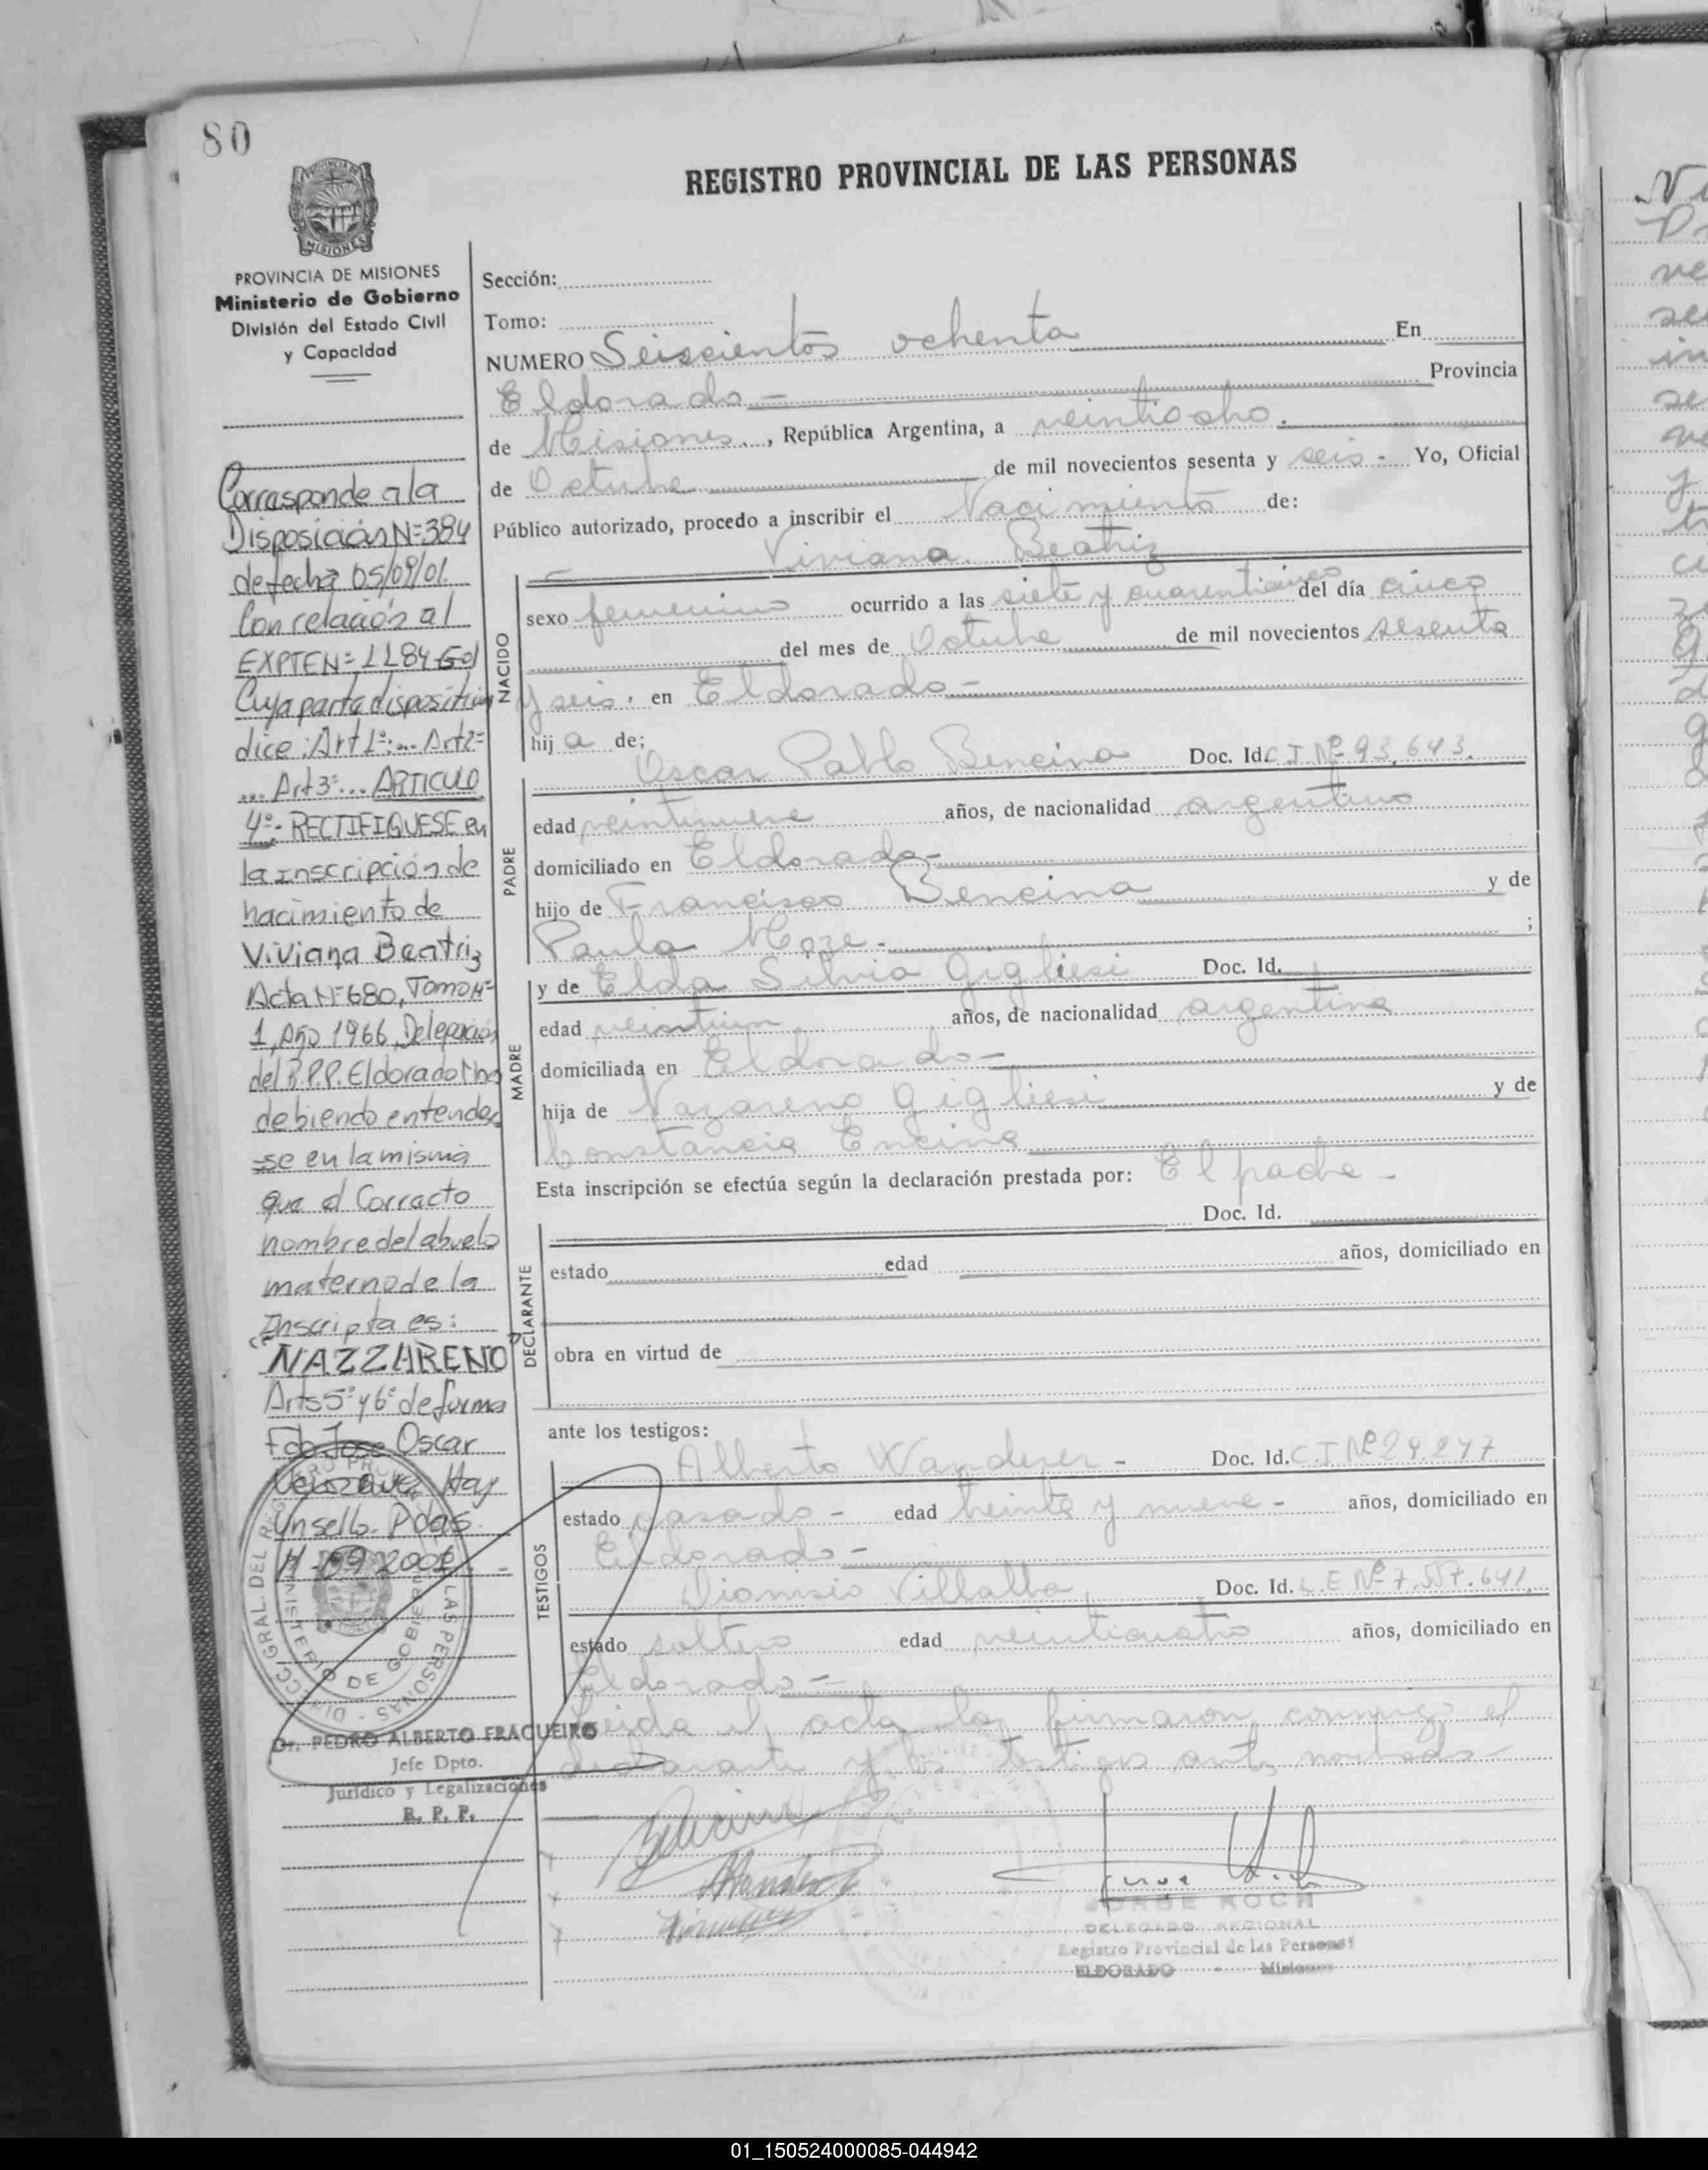 80
REGISTRO PROVINCIAL DE LAS PERSONAS
PROVINCIA DE MISIONES
Ministerio de Gobierno
División del Estado Civil
y Capacidad
Corresponde a la
Disposición N=384
de fecha 05/09/01
Con relación al
EXPTEN=1184-G-01
Cuya parte dispositiva
dice: Art 1º:... Art 2=
... Art 3º... ARTICULO
4º- RECTIFIQUESE en
la inscripción de
nacimiento de
Viviana Beatriz
Acta Nº680, Tomo Nº
1, Año 1966, Delegación
del R.P.P. Eldorado Mnes
debiendo entender
se en la misma
que el Correcto
nombre del abuelo
materno de la
Inscripta es:
"NAZZARENO"
Arts 5º y 6º de forma
Fdo Jose Oscar
Hay
Un sello. Pdas.
11-09-2001
Dr. PEDRO ALBERTO FRAGUEIRO
Jefe Dpto.
Jurídico y Legalizaciones
R. P. P.
Sección:
Tomo:
NUMERO Seiscientos ochenta En
Eldorado - Provincia
de Misiones, República Argentina, a veintiocho
de Octubre de mil novecientos sesenta y seis - Yo, Oficial
Público autorizado, procedo a inscribir el Nacimiento de:
Viviana Beatriz
NACIDO
sexo femenino ocurrido a las siete y cuarenticinco del día cinco
del mes de Octubre de mil novecientos sesenta
y seis. en Eldorado -
hij a de:
Oscar Pablo Bencina Doc. Id. C.I. Nº 93.643.
PADRE
edad veintinueve años, de nacionalidad argentino
domiciliado en Eldorado -
hijo de Francisco Bencina y de
Paula Moze - ;
MADRE
y de Elda Silvia Gigliesi Doc. Id.
edad veintiun años, de nacionalidad argentina
domiciliada en Eldorado -
hija de Nazareno Gigliesi y de
Constancia Encina
Esta inscripción se efectúa según la declaración prestada por: El padre -
DECLARANTE
Doc. Id.
estado edad años, domiciliado en
obra en virtud de
ante los testigos:
TESTIGOS
Alberto Wanderer - Doc. Id. C.I Nº 29.247
estado casado - edad treinta y nueve - años, domiciliado en
Eldorado -
Dionisio Villalba Doc. Id. L.E Nº 7.557.641
estado soltero edad veinticuatro años, domiciliado en
Eldorado -
Leida el acta la firmaron conmigo el
declarante y los testigos antes nombrados
JORGE KOCH
DELEGADO REGIONAL
Registro Provincial de las Personas
ELDORADO - Misiones
01_150524000085-044942